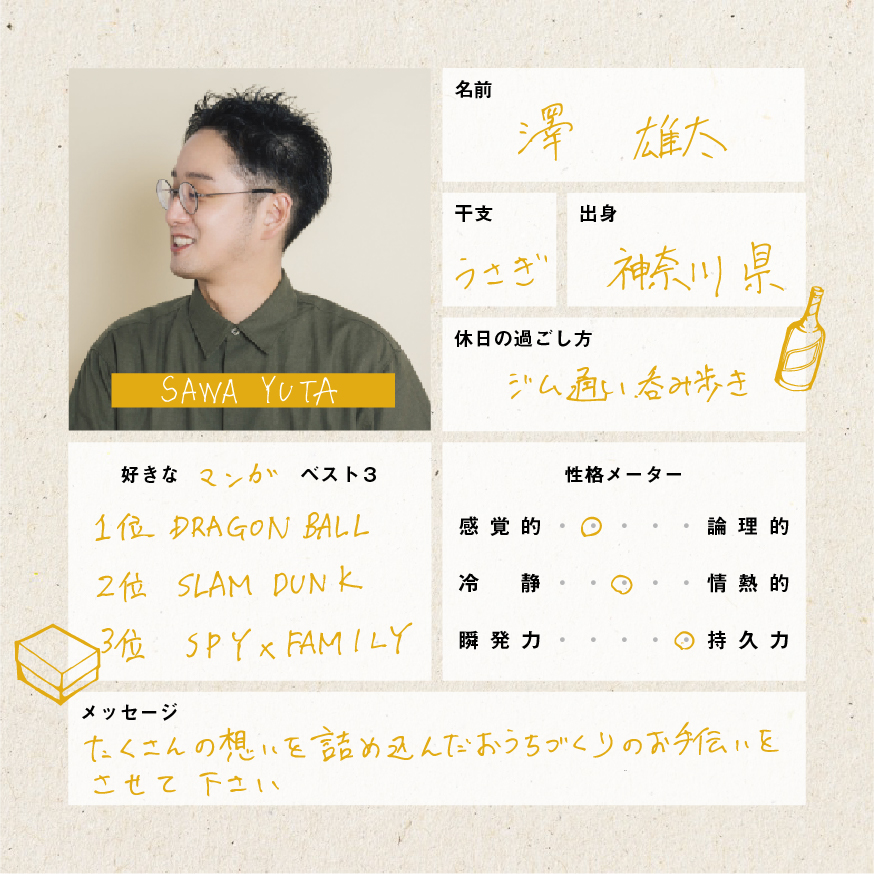 SAWA YUTA
名前
澤 雄太
干支
うさぎ
出身
神奈川県
休日の過ごし方
ジム通い 呑み歩き
好きな マンガ ベスト3
1位 DRAGON BALL
2位 SLAM DUNK
3位 SPY×FAMILY
性格メーター
感覚的 論理的
冷静 情熱的
瞬発力 持久力
メッセージ
たくさんの想いを詰め込んだおうちづくりのお手伝いを
させて下さい